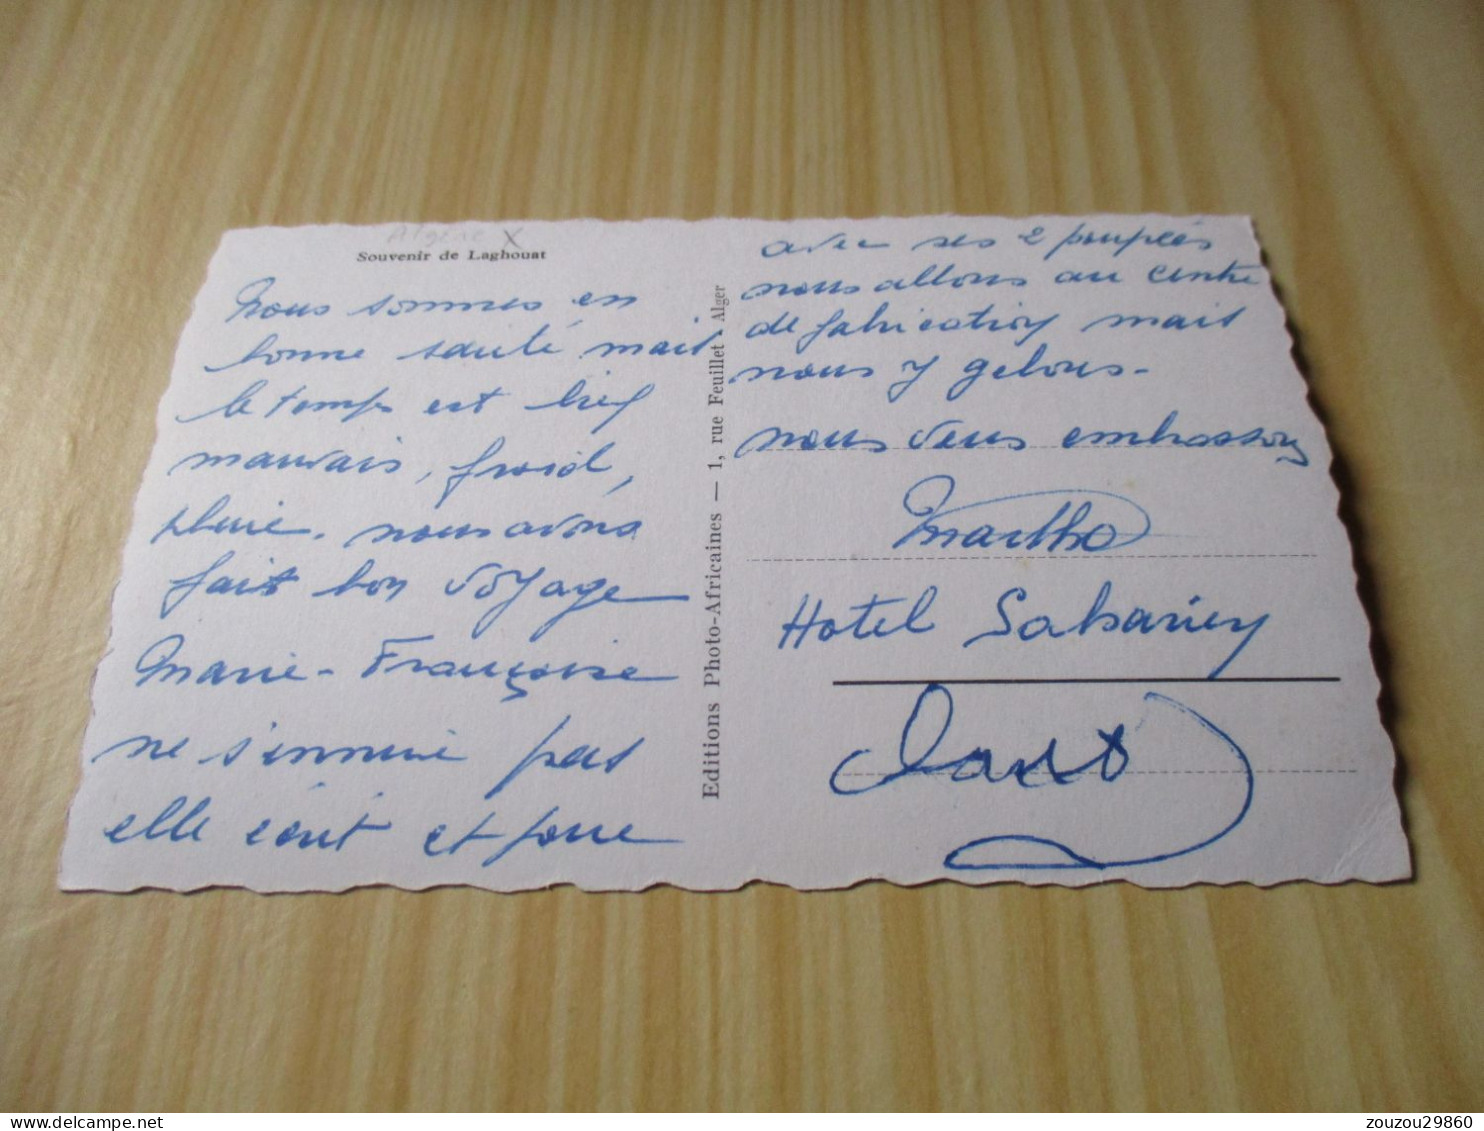 Algérie X
Souvenir de Laghouat
Nous sommes en
bonne santé mais
le temps est bien
mauvais, froid,
pluie. nous avons
fait bon voyage
Marie-Françoise
ne s'ennuie pas
elle écrit et joue
Editions Photo-Africaines — 1, rue Feuillet - Alger
avec ses 2 poupées
nous allons au centre
de fabrication mais
nous y gelons-
nous vous embrassons
Marthe
Hotel Saharien
zouzou29860